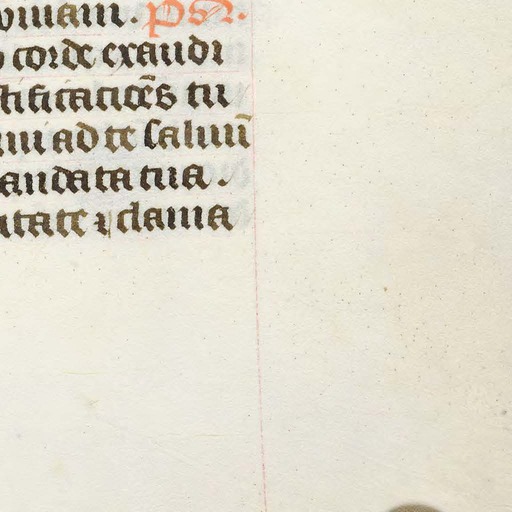 viuam. ps̄.
corde exaudi
tificatiōēs tu
ui ad te saluū
andata tua.
itate ⁊ clama